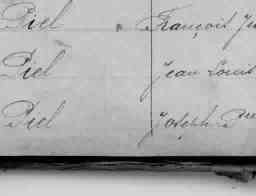 Piel François
Piel Jean Louis
Piel Joseph